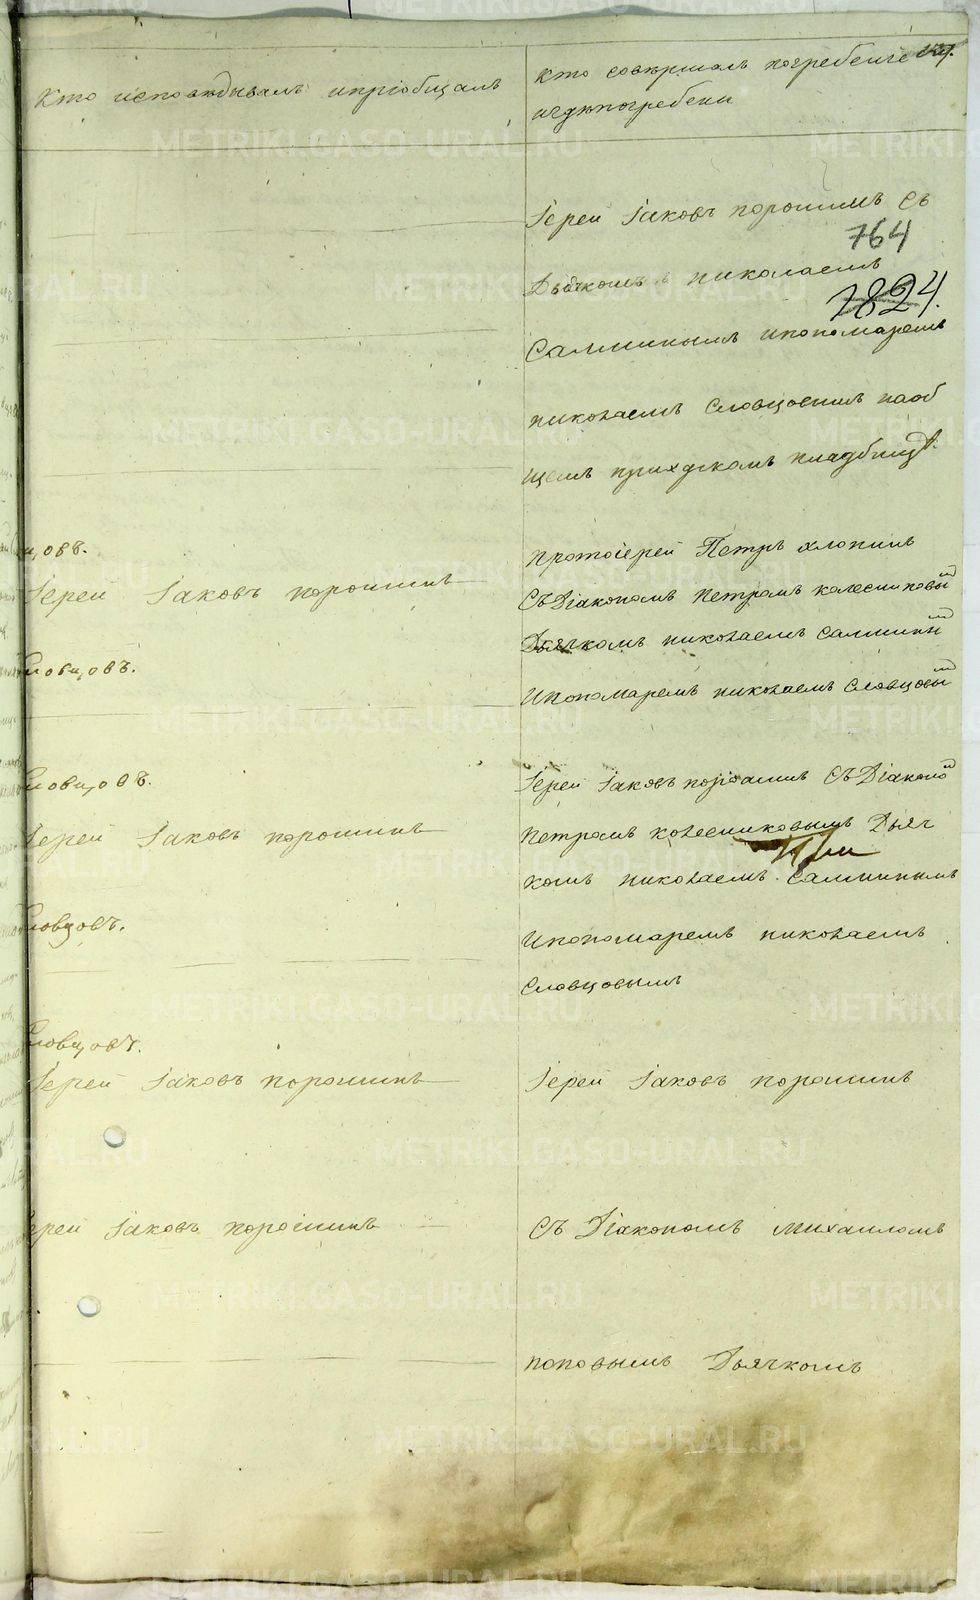 Кто исповѣдывалъ ипріобщалъ
Кто совершалъ погребеніе
игдѣпогребены
Іерей Іаковъ порошинъ съ
764
Дьячкомъ николаемъ
7824.
Салминымъ ипономаремъ
николаемъ Словцовымъ наоб
щемъ приходскомъ кладбищѣ.
цовъ.
Іерей Іаковъ порошинъ
ловцовъ.
протоіерей Петръ хлопинъ
СъДіакономъ Петромъ колесниковы
Дьячкомъ николаемъ салмины
Ипономаремъ николаемъ Словцовы
ловцовъ.
Іерей Іаковъ порошинъ
ловцовъ.
Іерей Іаковъ порошинъ СъДіаконо
Петромъ колесниковымъ Дьяч
комъ николаемъ Салминымъ
Ипономаремъ николаемъ
Словцовымъ
ловцовъ.
Іерей Іаковъ порошинъ
ерей Іаковъ порошинъ
Іерей Іаковъ порошинъ
Съ Діакономъ михаиломъ
поповымъ Дьячкомъ
METRIKI.GASO-URAL.RU